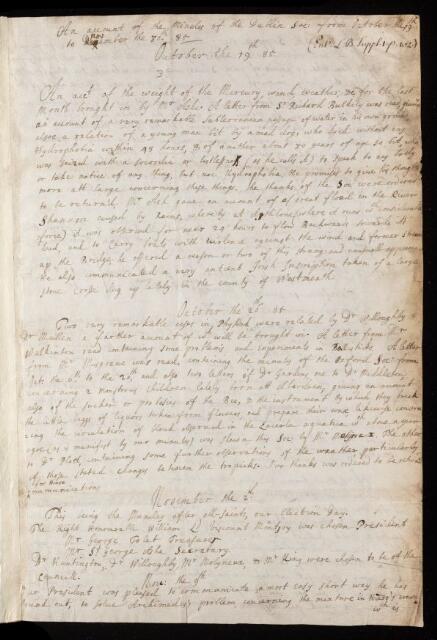 An account of the Minutes of the Dublin Soc: from October the 19th
to November the 7th. 85 (Entr'd L B. Suppl. 1. p. 202)
October the 19th 85
3
An acct. of the weight of the Mercury, winds weather, &c for the last
Month brought in by Mr. Ashe. A letter from Sr. Richard Bulkely was read, giving
an account of a very remarkable Subterranean passage of water in his own ground,
also a relation of a young man bit by a mad dog, who died without any
Hydrophobia within 48 hours, & of another about 30 years of age so bit, who
was seized with a or (as he calls it) to speak to any body
or take notice of any thing, but no Hydrophobia, he promises to give his thoughts
more att large concerning these things, the thanks of the Soc were ordered
to be returned. Mr. Ashe gave an account of a great flood in the River
Shannon caused by Rains, whereby at Athlone (where it runs
force) it was observed for near 24 hours to flow Backwards towards it
bed, and to carry boats with violence against the wind and former stream
up the Bridge, he offered a reason or two of this strange and unusual appearance
he also communicated a very antient Irish Inscription taken of a large
stone Cross dug up lately in the county of Westmeath.
October the 26th 85
Two very remarkable cases in Physick were related by Dr. Willoughby &
Dr Mullen a farther account of wch will be brought in. A letter from Mr.
Walkinton read containing some problems and Experiments in Balistiks. A letter
from Mr. Musgrave was read, containing the minutes of the Oxford Soc: from
the 6th to the 20th and also two letters of Dr. Garden, one to Dr. Middleton
concerning a monstrous Children lately born att Aberdeen, giving an account
also of the sucker or proboscis of the Bee, & the instrument by which they
the liquors taken from flowers, and prepare their wax, likewise concern
ing the circulation of blood observed in the Lacerta aquatica wch alone
(as is manifest by our minutes) was shewn this Soc: by Mr. Molyneux. The other
to Dr. Plott, containing some further observations of the weather particularly
of those stated changes between the tropicks. The thanks was ordered to be returned
for these communications
November the 2d
This being the Munday after all-saints, our Election day:
The Right Honourable William Ld Viscount Mountjoy was chosen President
Mr. George Tolet Treasurer
Mr. St. George Ashe Secretary
Dr. Huntington, Dr. Willoughby, Mr. Molyneux, & Mr. King were chosen to be of the
Councill.
Nov: the 9th
Our President was pleased to communicate a most easy short way he has
found out, to solve Archimedes's problem concerning the mixture in King's crown